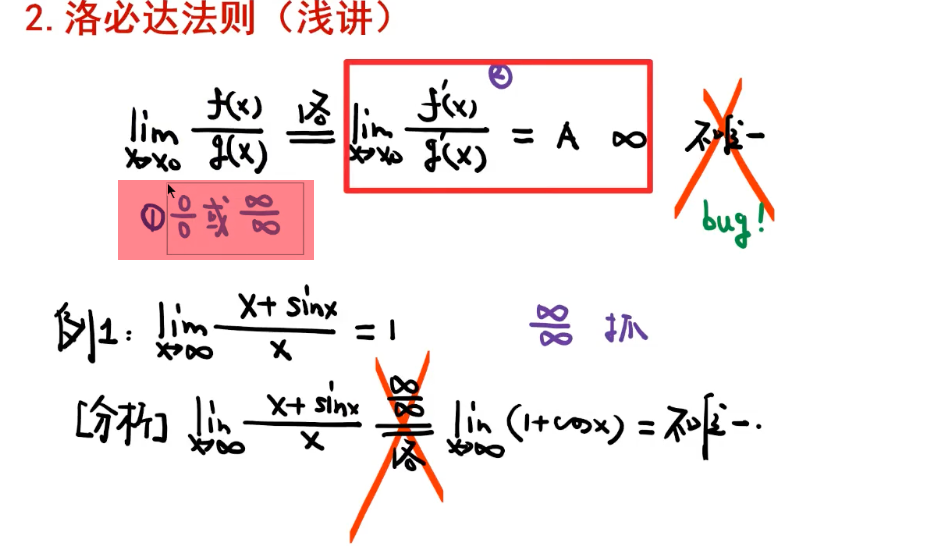 2. 洛必达法则（浅讲）
②
lim x→x₀ f(x)/g(x) 洛= lim x→x₀ f'(x)/g'(x) = A ∞ 不唯一
① 0/0 或 ∞/∞ bug!
例1: lim x→∞ (x+sinx)/x = 1 ∞/∞ 抓
[分析] lim x→∞ (x+sinx)/x ∞/∞ 洛= lim x→∞ (1+cosx) = 不唯一.